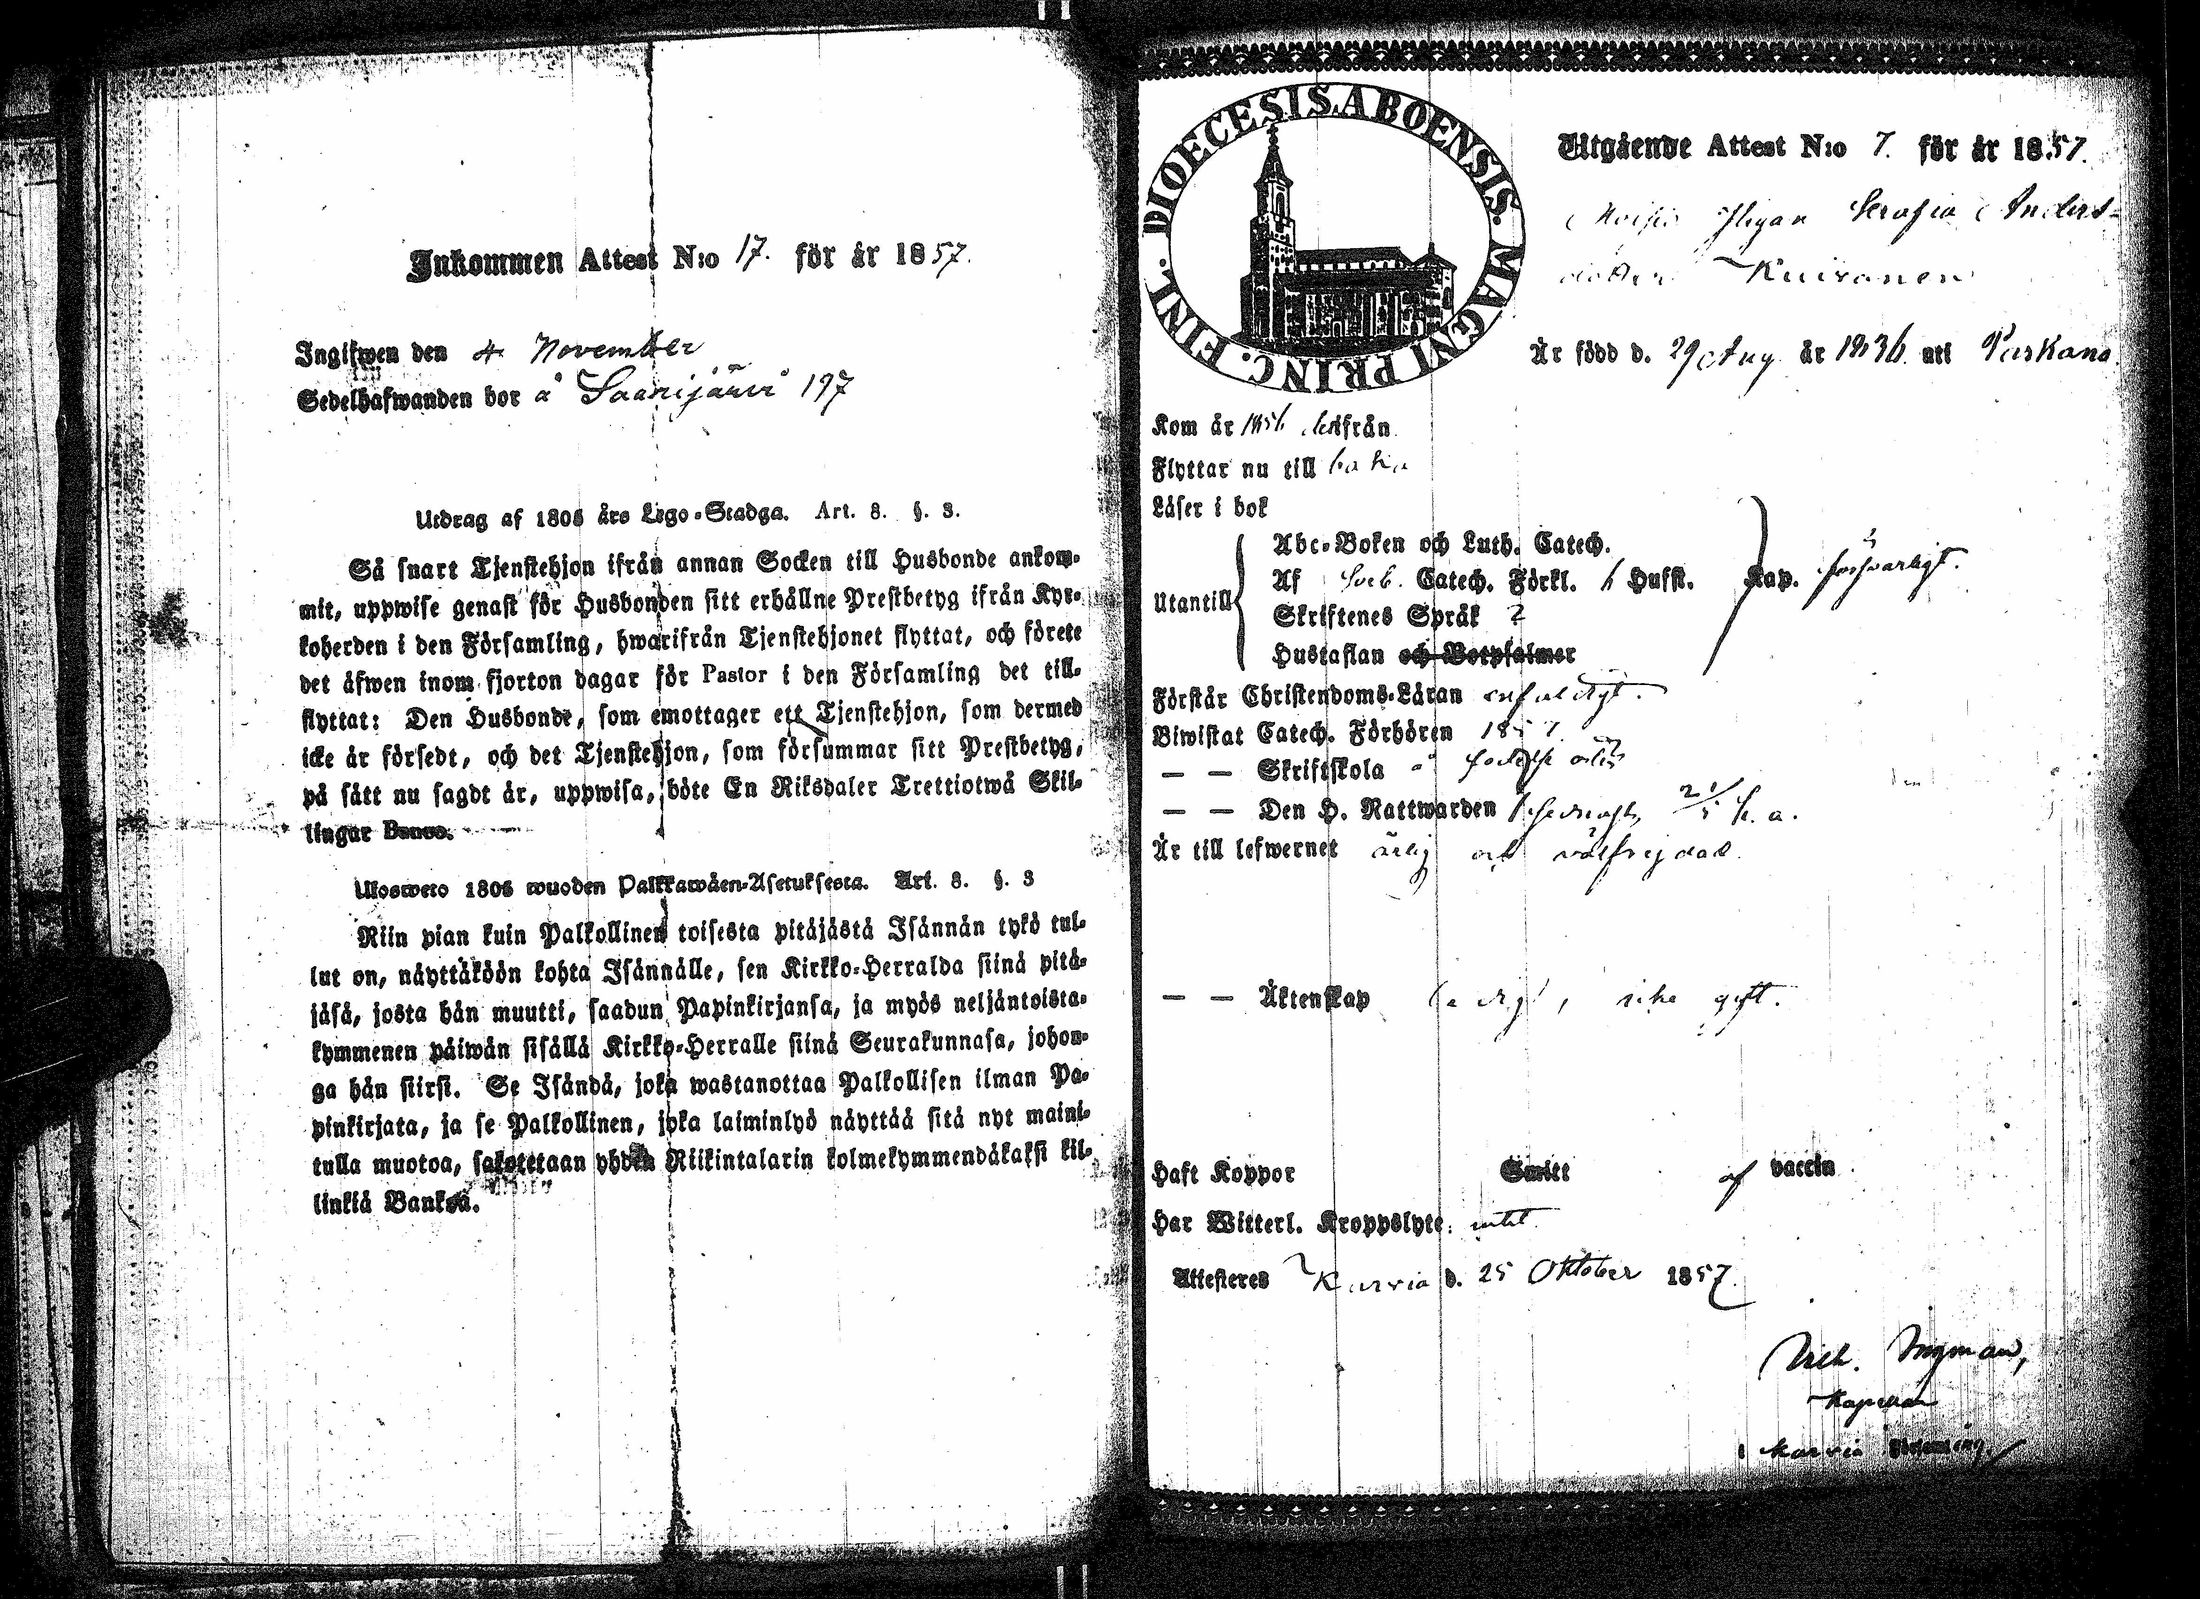 Inkommen Attest N:o 17. för år 1857.
Ingifwen den 4 November
Sedelhafwanden bor å Saarijärvi 197
Utdrag af 1805 års Lego-Stadga. Art. 8. §. 3.
Så snart Tjenstehjon ifrån annan Socken till Husbonde ankom-
mit, uppwise genast för Husbonden sitt erhållne Prestbetyg ifrån Kyr-
koherden i den Församling, hwarifrån Tjenstehjonet flyttat, och förete
det äfwen inom fjorton dagar för Pastor i den Församling det till-
flyttat: Den Husbonde, som emottager ett Tjenstehjon, som dermed
icke är försedt, och det Tjenstehjon, som försummar sitt Prestbetyg,
på sätt nu sagdt är, uppwisa, böte En Riksdaler Trettiotwå Skil-
lingar Banco.
Ulosweto 1805 wuoden Palkkawäen-Asetuksesta. Art. 8. §. 3
Niin pian kuin Palkollinen toisesta pitäjästä Isännän tykö tul-
lut on, näyttäköön kohta Isännälle, sen Kirkko-Herralda siinä pitä-
jäsä, josta hän muutti, saadun Papinkirjansa, ja myös neljäntoista-
kymmenen päiwän sisällä Kirkko-Herralle siinä Seurakunnasa, johon-
ga hän siirsi. Se Isändä, joka wastanottaa Palkollisen ilman Pa-
pinkirjata, ja se Palkollinen, joka laiminlyö näyttää sitä nyt maini-
tulla muotoa, sakotetaan yhden Riikintalarin kolmekymmendäkaksi kil-
linkiä Banksa.
DIOECESIS ABOENSIS. MAGNI PRINC. FINL.
Utgående Attest N:o 7. för år 1857.
Pigan Serafia Anders-
dotter Kuivanen
Är född d. 29 Aug år 1836 uti Parkano.
Kom år 1856 ifrån
Flyttar nu till
Läser i bok
Abc-Boken och Luth. Catech.
Af Sveb. Catech. Förkl. Hufst. Kap. försvarligt.
Utantill
Skriftenes Språk 2
Hustaflan och Botpsalmer
Förstår Christendoms-Läran enfaldigt.
Biwistat Catech. Förhören 1857.
— — Skriftskola
— — Den H. Nattwarden
Är till lefwernet ärlig och välfrejdad.
— — Äktenskap ledig, icke gift.
Haft Koppor Smitt af vaccin
Har Witterl. Kroppslyte: intet.
Attesteres Karvia d. 25 Oktober 1857.
Vilh. Ingman,
Kapellan
i Karvia Församling.